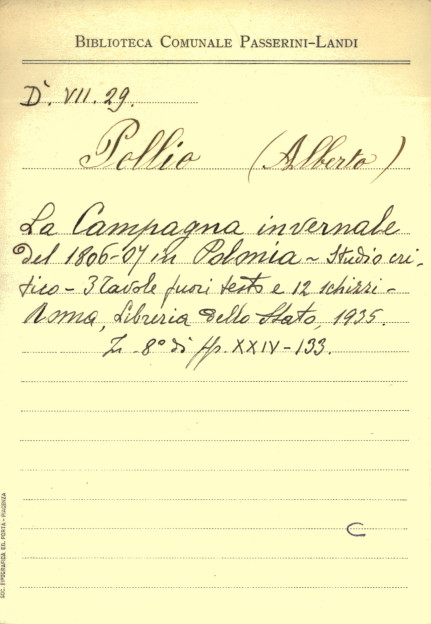 BIBLIOTECA COMUNALE PASSERINI-LANDI
D. VII. 29.
Pollio (Alberto)
La Campagna invernale
del 1806-07 in Polonia ~ Studio cri-
tico - 3 Tavole fuori testo e 12 schizzi -
Roma, Libreria dello Stato, 1935.
In 8° di pp. XXIV - 133.
C
SOC. TIPOGRAFICA ED. PORTA - PIACENZA